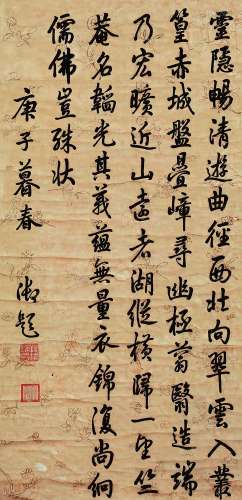 靈隱暢清遊曲徑西北向翠雲入叢
篁赤城盤疊嶂尋幽極蓊翳造端
乃宏曠近山遠者湖縱橫歸一望竺
菴名韜光其義蘊無量衣錦復尚絅
儒佛豈殊狀
庚子暮春
御題